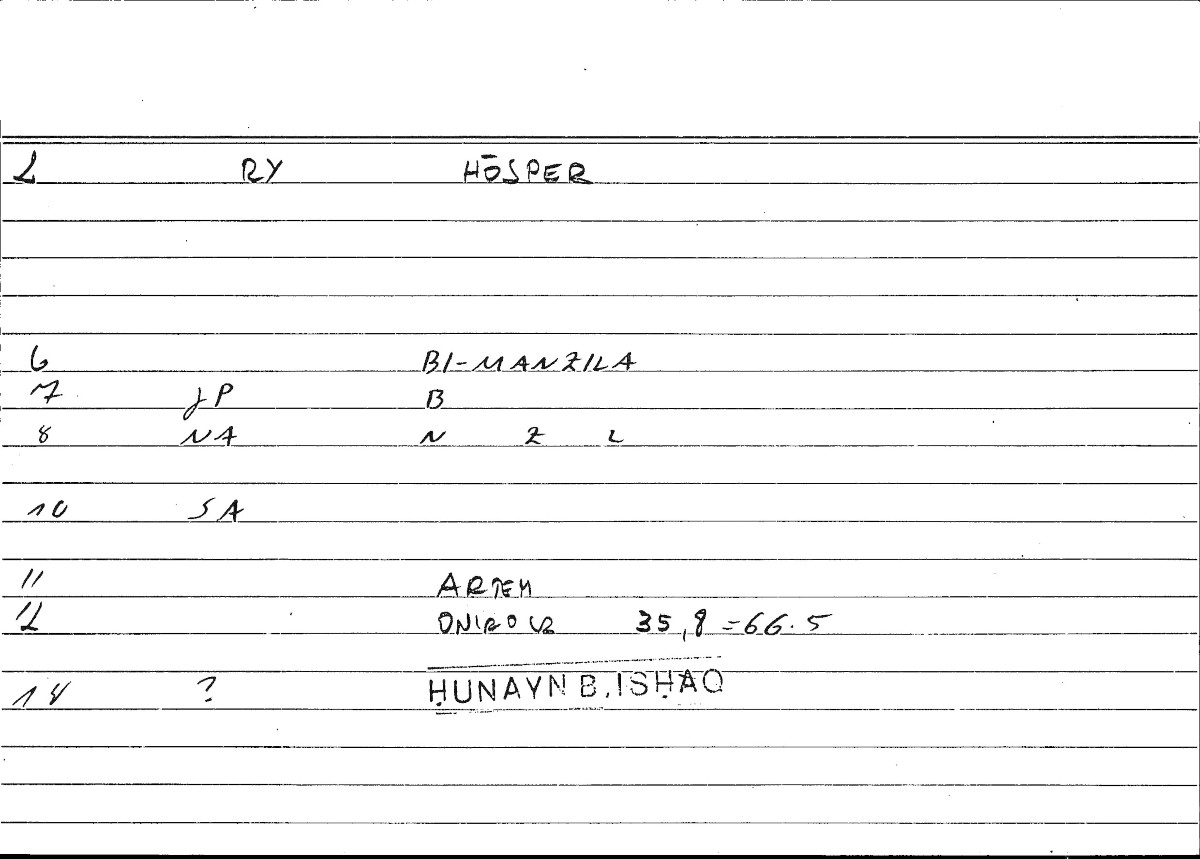 1 RY HŌSPER
6 BI-MANZILA
7 JP B
8 NA N Z L
10 SA
11 ARTEM
12 ONIROCR 35,8=66.5
14 ? ḤUNAYN B. ISḤAQ